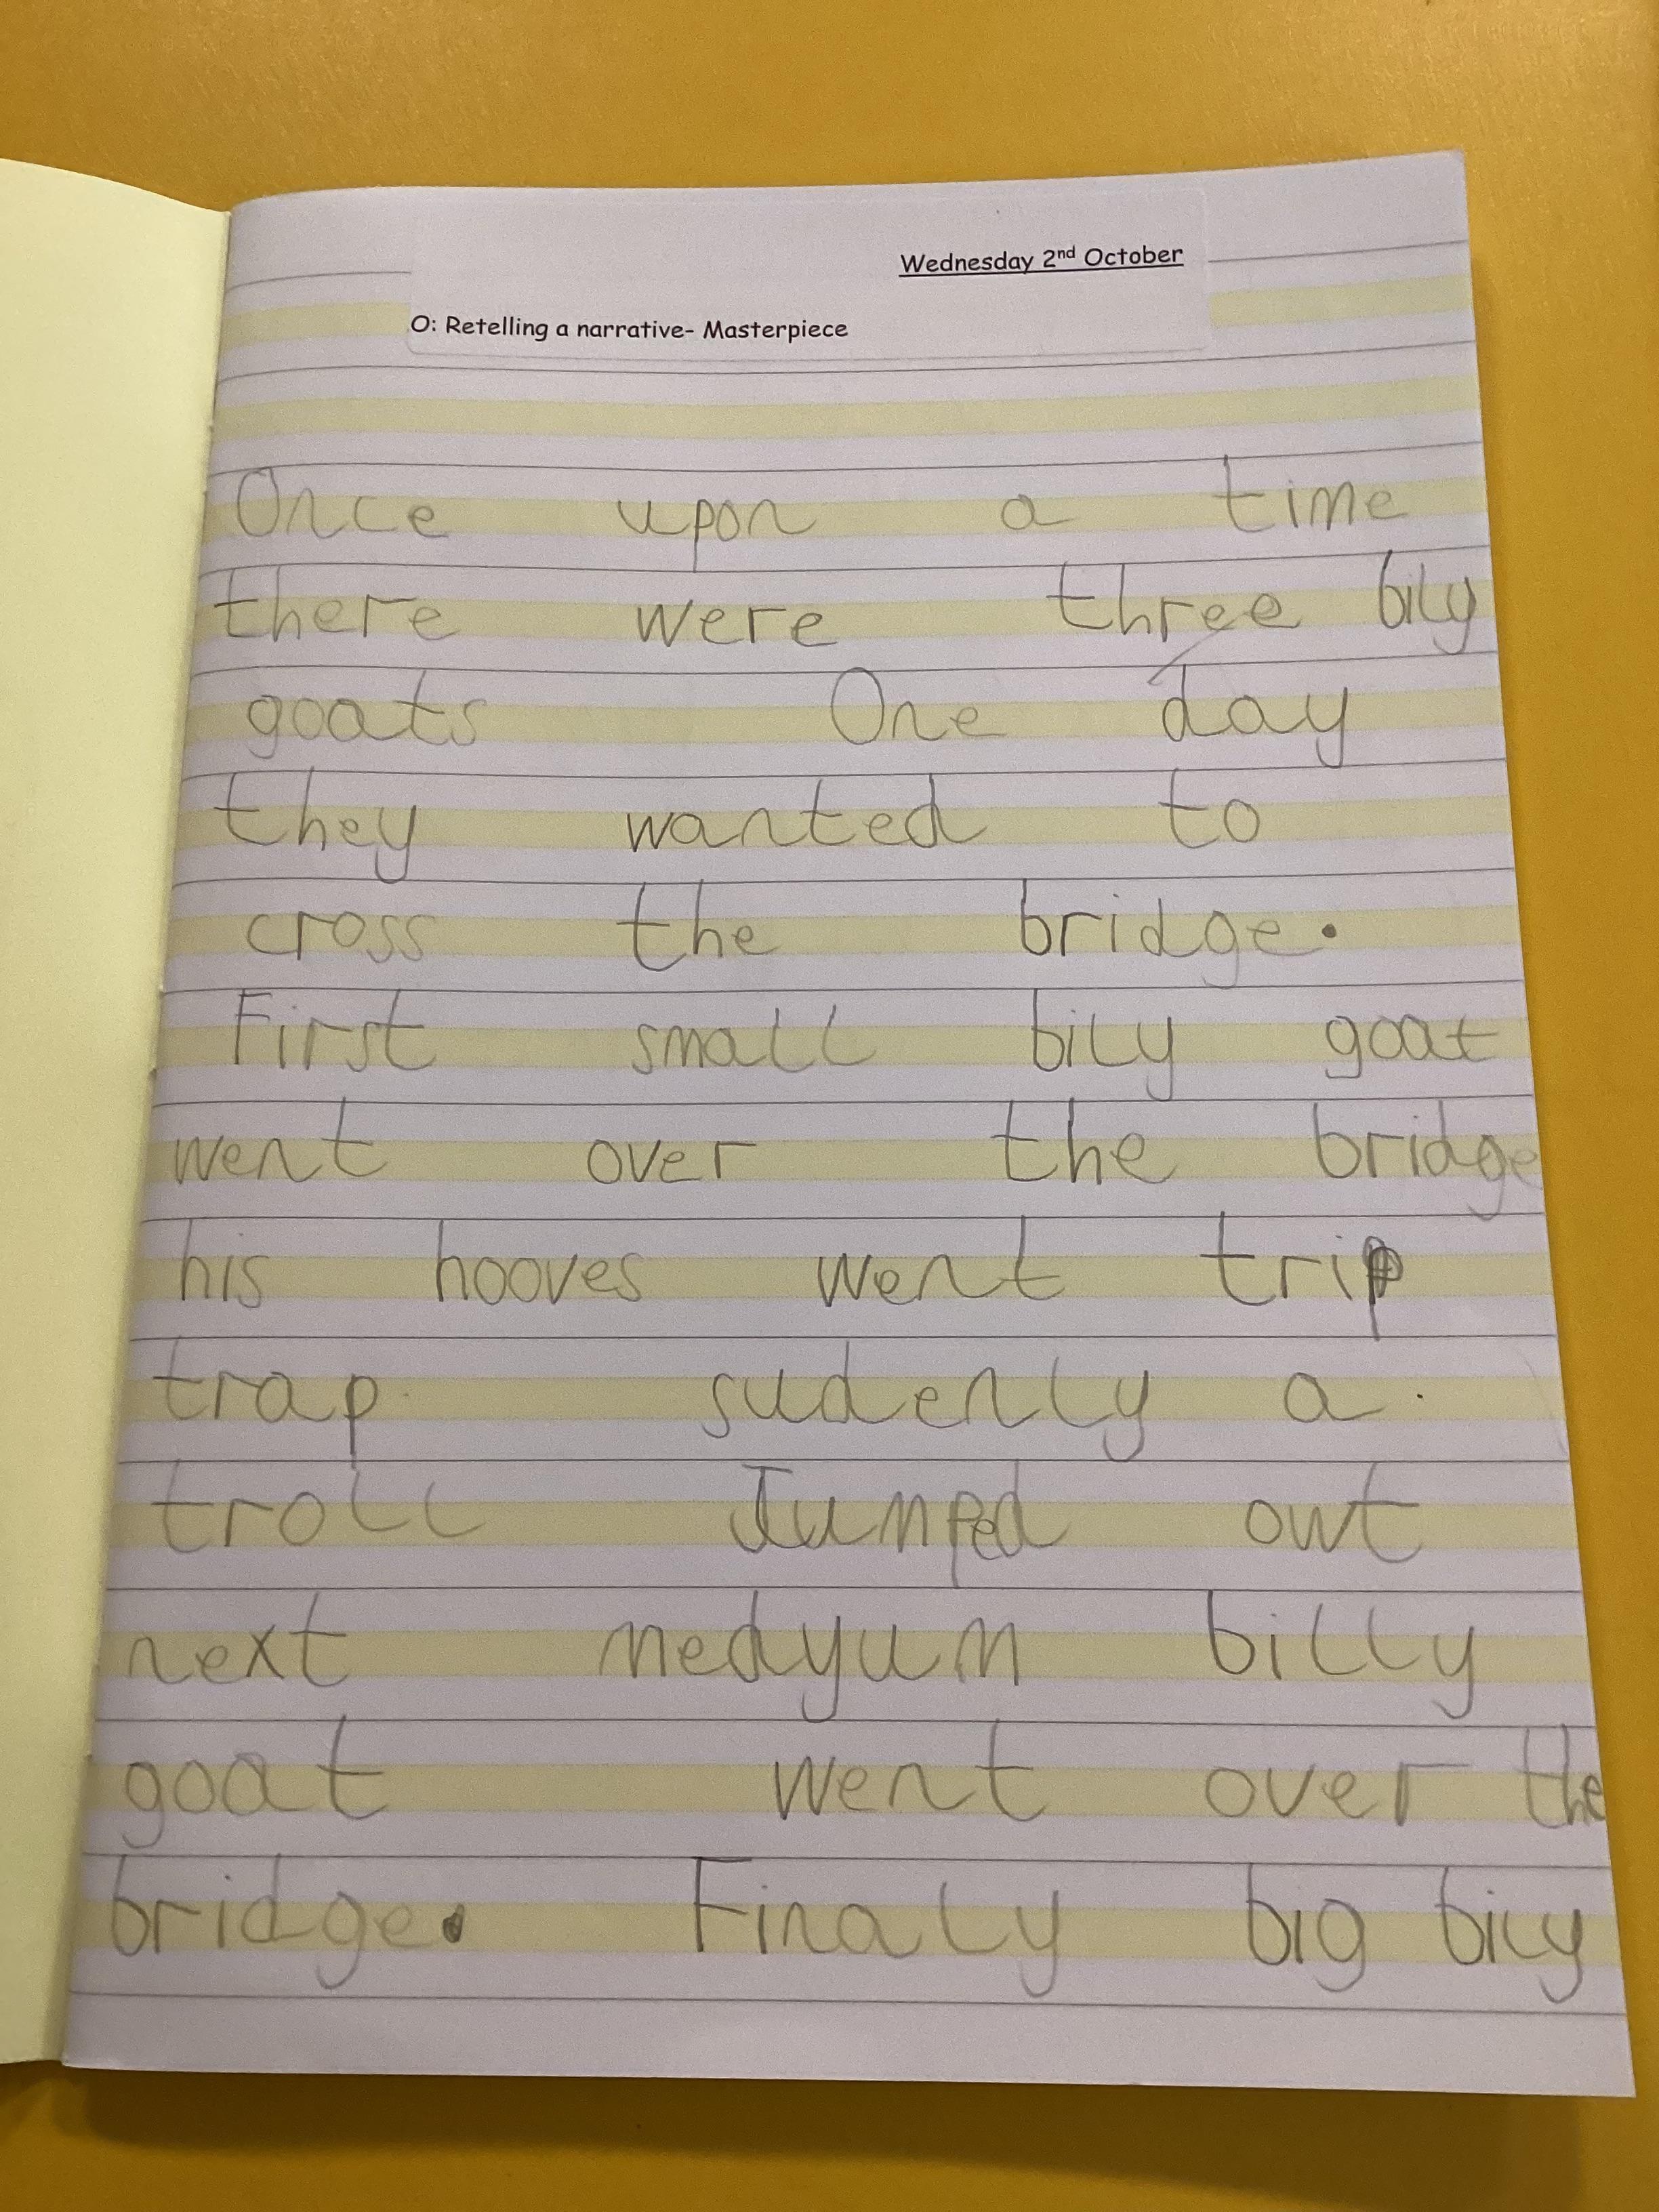 Wednesday 2nd October
O: Retelling a narrative- Masterpiece
Once upon a time
there were three bily
goats One day
they wanted to
cross the bridge.
First small bily goat
went over the bridge
his hooves went trip
trap sudenly a
troll Jumped owt
next medyum billy
goat went over the
bridge. Finaly big bily